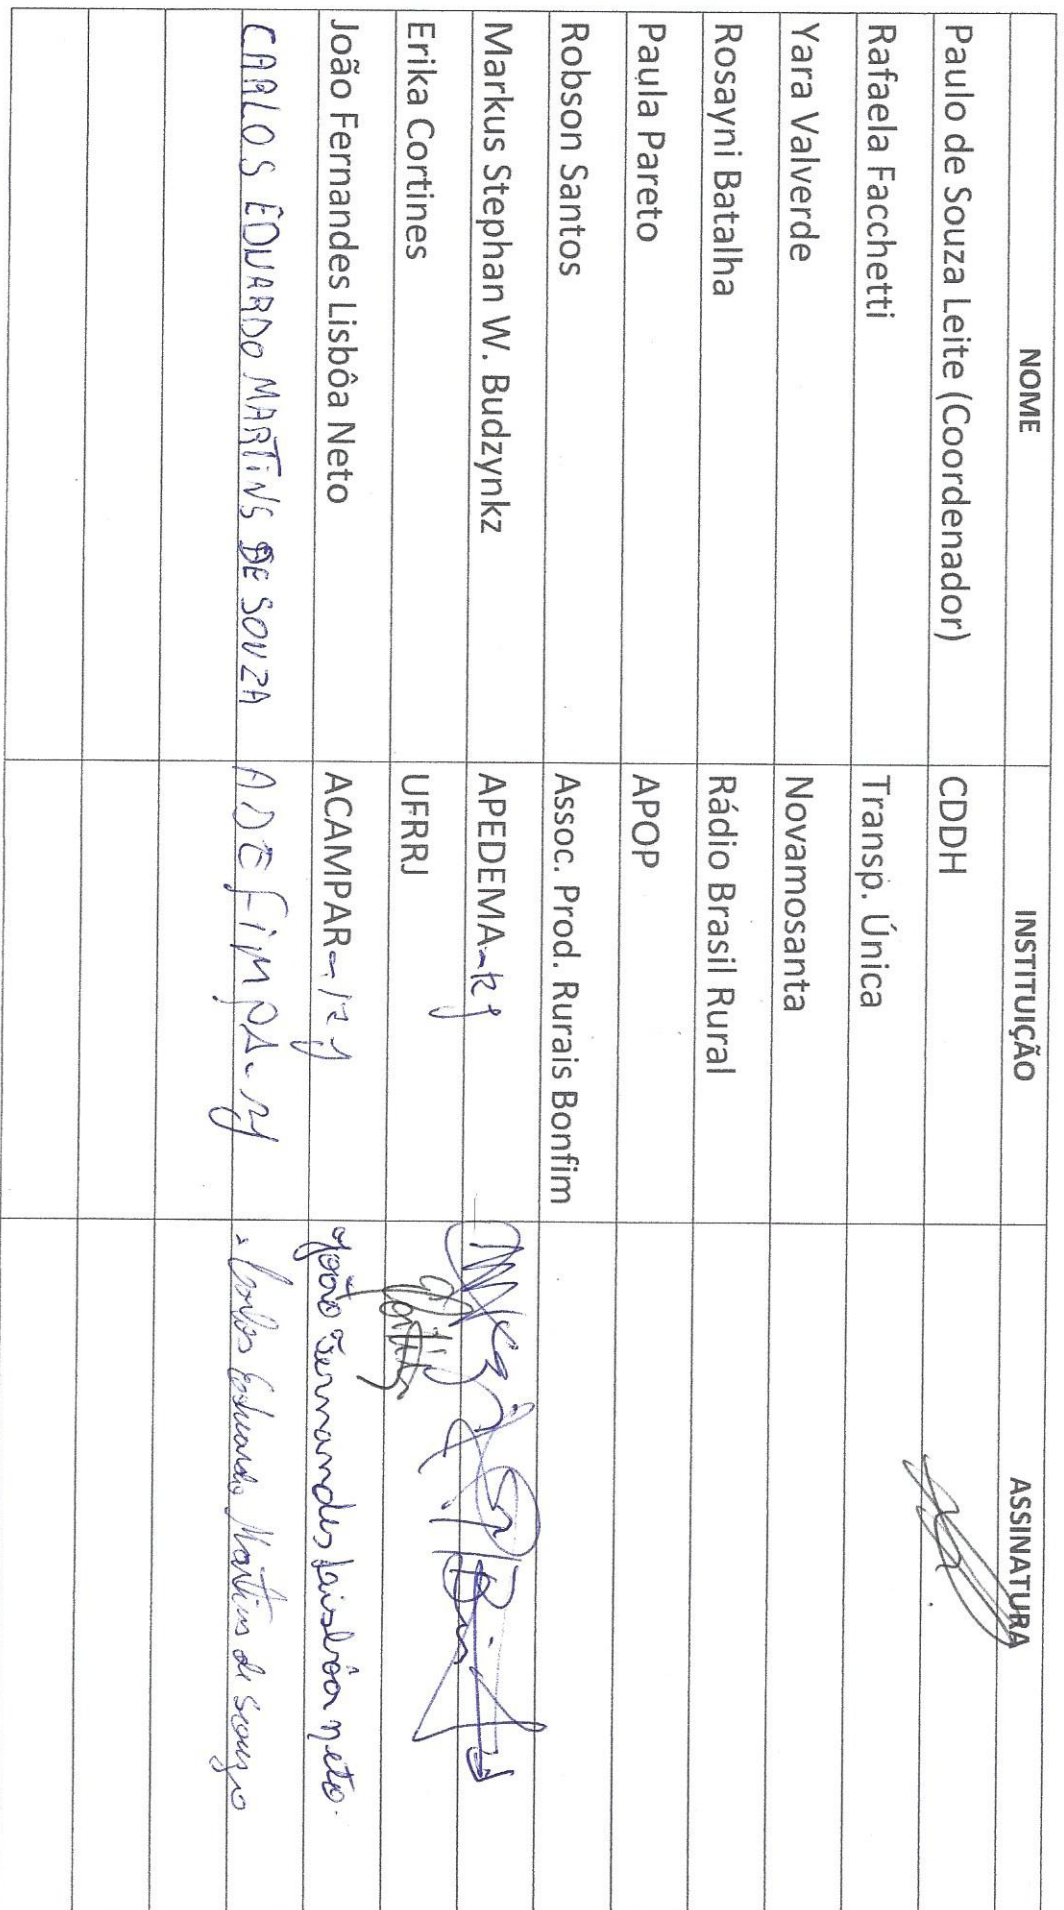 NOME INSTITUIÇÃO ASSINATURA
Paulo de Souza Leite (Coordenador) CDDH
Rafaela Facchetti Transp. Única
Yara Valverde Novamosanta
Rosayni Batalha Rádio Brasil Rural
Paula Pareto APOP
Robson Santos Assoc. Prod. Rurais Bonfim
Markus Stephan W. Budzynkz APEDEMA-RJ
Erika Cortines UFRRJ
João Fernandes Lisbôa Neto ACAMPAR-RJ João Fernandes Lisbôa neto.
CARLOS EDUARDO MARTINS DE SOUZA ADEFIMPA-RJ Carlos Eduardo Martins de souza